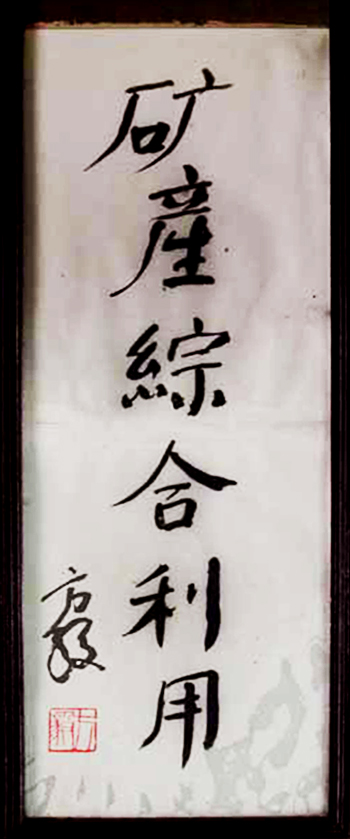 矿產綜合利用
方毅